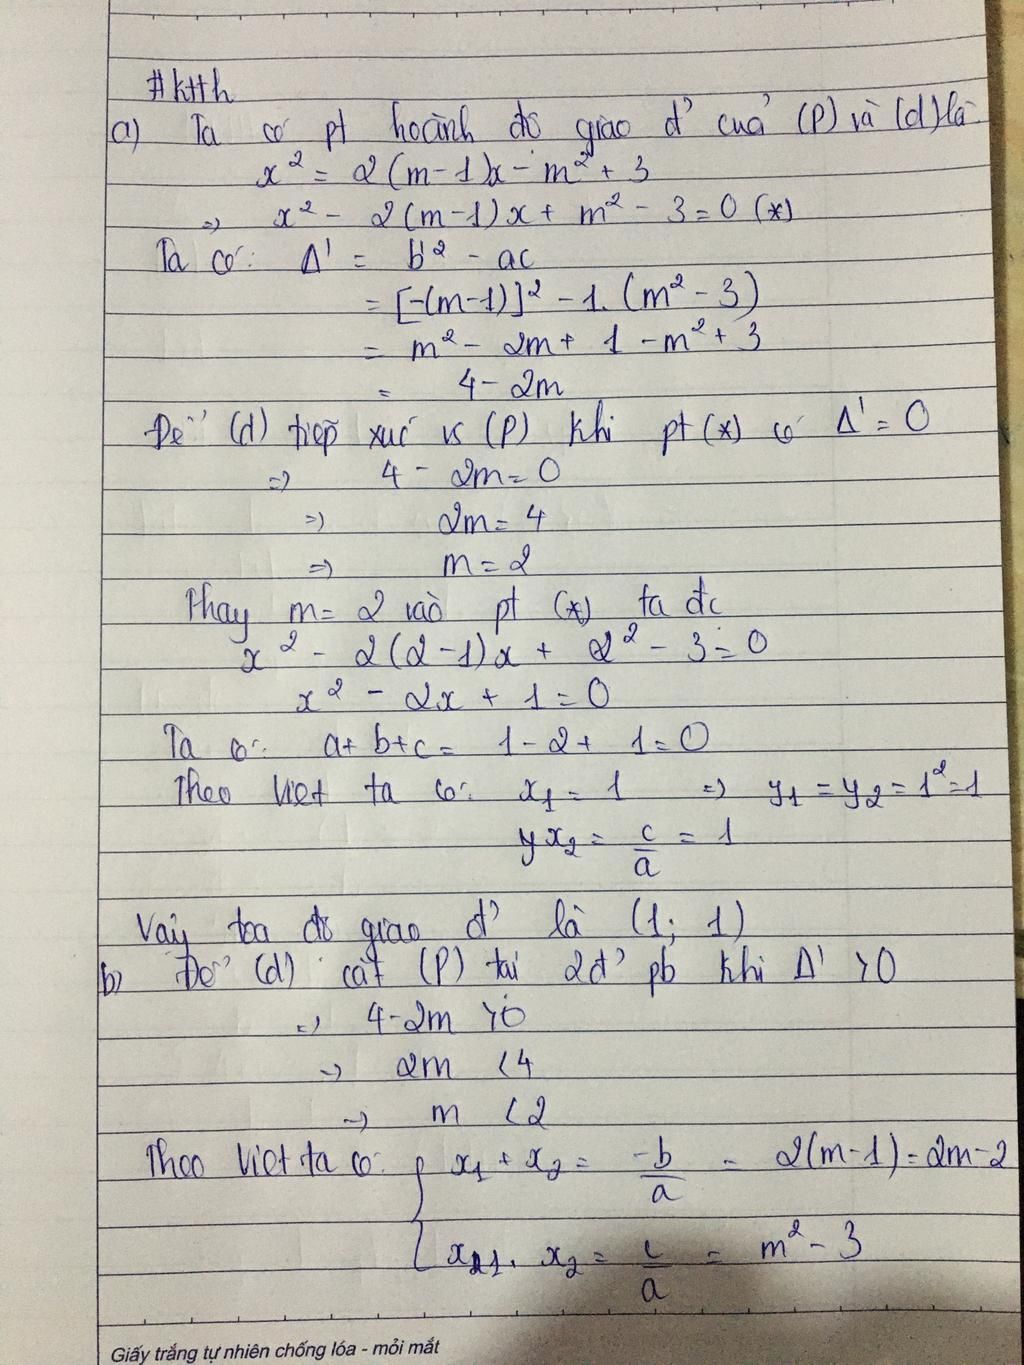 #ktth
a) Ta có pt hoành độ giao đ' của (P) và (d) là
x² = 2(m-1)x - m² + 3
=> x² - 2(m-1)x + m² - 3 = 0 (*)
Ta có: Δ' = b'² - ac
= [-(m-1)]² - 1. (m² - 3)
= m² - 2m + 1 - m² + 3
= 4 - 2m
Để (d) tiếp xúc vs (P) khi pt (*) có Δ' = 0
=> 4 - 2m = 0
=> 2m = 4
=> m = 2
Thay m = 2 vào pt (*) ta đc
x² - 2(2-1)x + 2² - 3 = 0
x² - 2x + 1 = 0
Ta có: a+b+c = 1 - 2 + 1 = 0
Theo Viet ta có: x₁ = 1 => y₁ = y₂ = 1² = 1
x₂ = c/a = 1
Vậy tọa độ giao đ' là (1; 1)
b) Để (d) cắt (P) tại 2đ' pb khi Δ' > 0
=> 4-2m > 0
=> 2m < 4
=> m < 2
Theo Viet ta có: { x₁ + x₂ = -b/a = 2(m-1) = 2m-2
x₁. x₂ = c/a = m² - 3
Giấy trắng tự nhiên chống lóa - mỏi mắt